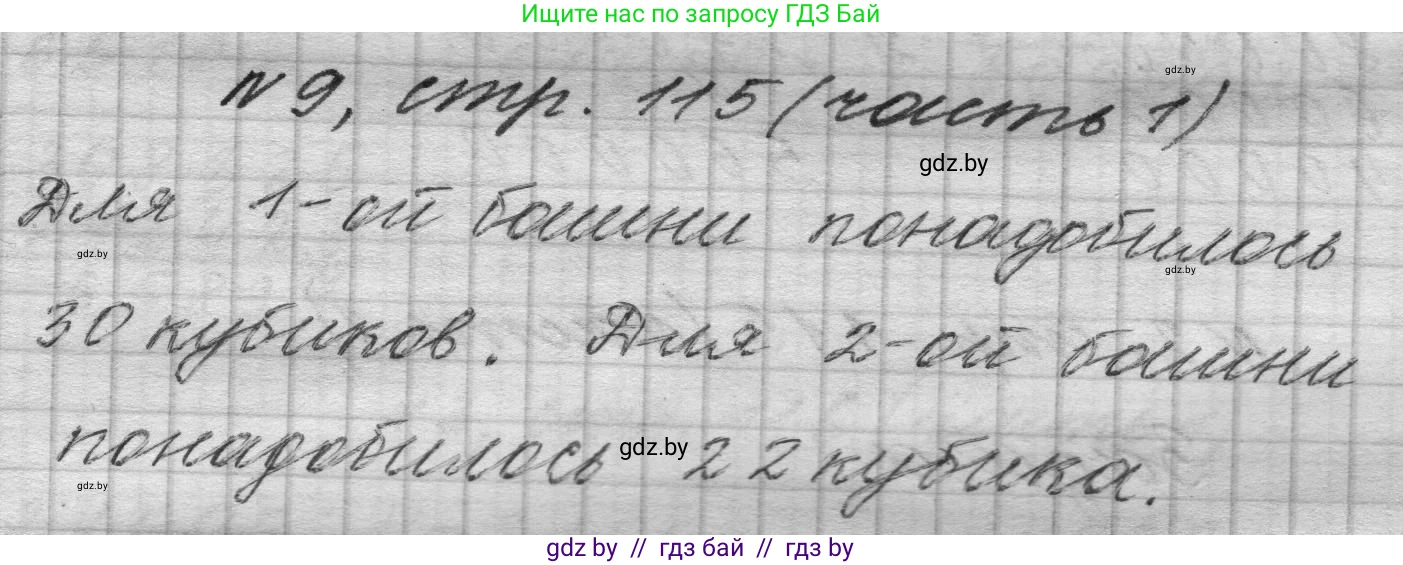 Ищите нас по запросу ГДЗ Бай
N 9, стр. 115 (часть 1)
gdz.by
gdz.by
Для 1-ой башни понадобилось
gdz.by
gdz.by
30 кубиков. Для 2-ой башни
понадобилось 22 кубика.
gdz.by
gdz.by
gdz by // гдз бай // гдз by